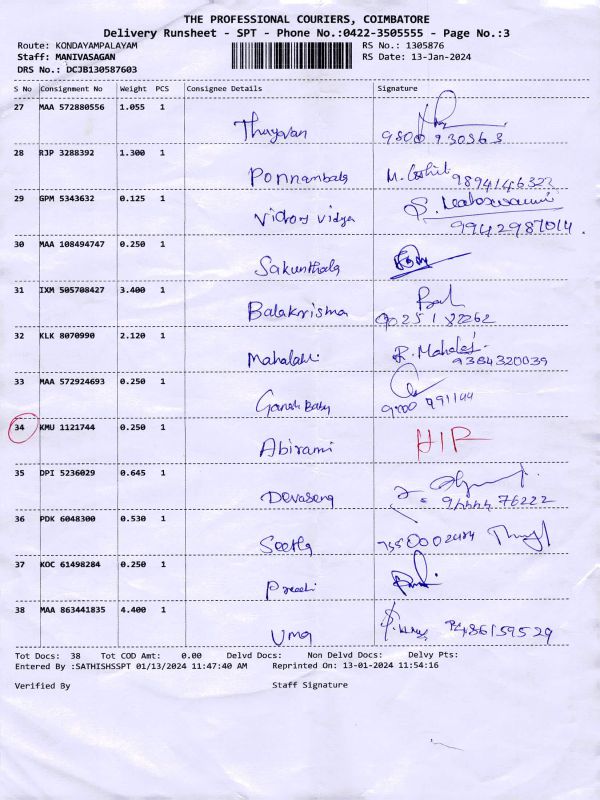 THE PROFESSIONAL COURIERS, COIMBATORE
Delivery Runsheet - SPT - Phone No.:0422-3505555 - Page No.:3
Route: KONDAYAMPALAYAM RS No.: 1305876
Staff: MANIVASAGAN RS Date: 13-Jan-2024
DRS No.: DCJB130587603
S No Consignment No Weight PCS Consignee Details Signature
27 MAA 572880556 1.055 1
Thayavan
28 RJP 3288392 1.300 1
Ponnambala M.
9894146322
29 GPM 5343632 0.125 1
Vidhoy Vidya
9942987014.
30 MAA 108494747 0.250 1
Sakunthala
31 IXM 505708427 3.400 1
Balakrisma
32 KLK 8070990 2.120 1
Mahalaki R. Mahalaj
9384320039
33 MAA 572924693 0.250 1
Ganesh Baby
34 KMU 1121744 0.250 1
Abirami
35 DPI 5236029 0.645 1
Devasena
76222
36 PDK 6048300 0.530 1
Seetha
37 KOC 61498284 0.250 1
Preethi
38 MAA 863441835 4.400 1
Uma
Tot Docs: 38 Tot COD Amt: 0.00 Delvd Docs: Non Delvd Docs: Delvy Pts:
Entered By :SATHISHSSPT 01/13/2024 11:47:40 AM Reprinted On: 13-01-2024 11:54:16
Verified By Staff Signature